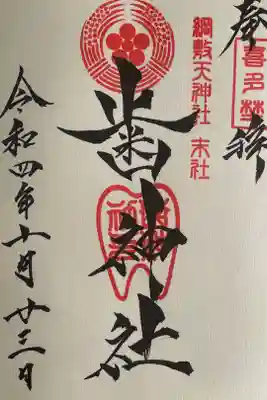 奉拝
喜多埜
綱敷天神社 末社
歯神社
令和四年十一月廿三日